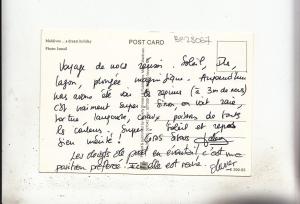 Maldives ... a dream holiday
Photo: Ismail
POST CARD
Voyage de nois reussi. Soleil, Ile,
lagon, plongée magnifique. Aujourd'hui
nous avons été voir les requins (à 3m de nous)
C'est vraiment super. Sinon on voit raie,
tortue, langouste, coraux, poissons de toutes
les couleurs. Super. Soleil et repos
bien mérité! Gros bisous
Les doigts de pied en éventail, c'est ma
position préférée. elle est ravie. Olivier